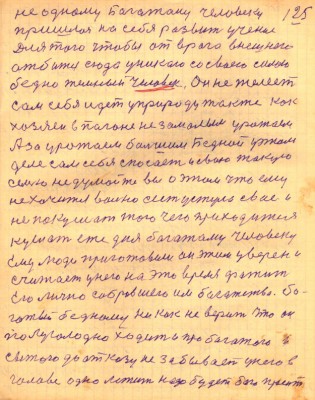 125
не одному багатому человеку
пришлося на себя развит учение
Для того чтобы от врага внешнего
отбити сюда уникаго со своею силою
бедно темный человек. Он не жалеет
сам себя идет у природу также как
хозяин в погоне не за малым урожаем
А за урожаем болшим Бедной у этом
деле сам себя спосает и свою такую
силу не думайте вы о том что ему
не хочится
не того чего приходится
кушат еже дня багатому человеку
Ему люди приготовили он этим уверен и
считает у него на это время хватит
Его лично собравшего им багатства. Бо-
гатый бедному ни как не верит что он
полуголодно ходит и про багатого
святого до отказу не забывает у него в
голове одно будет бога просит